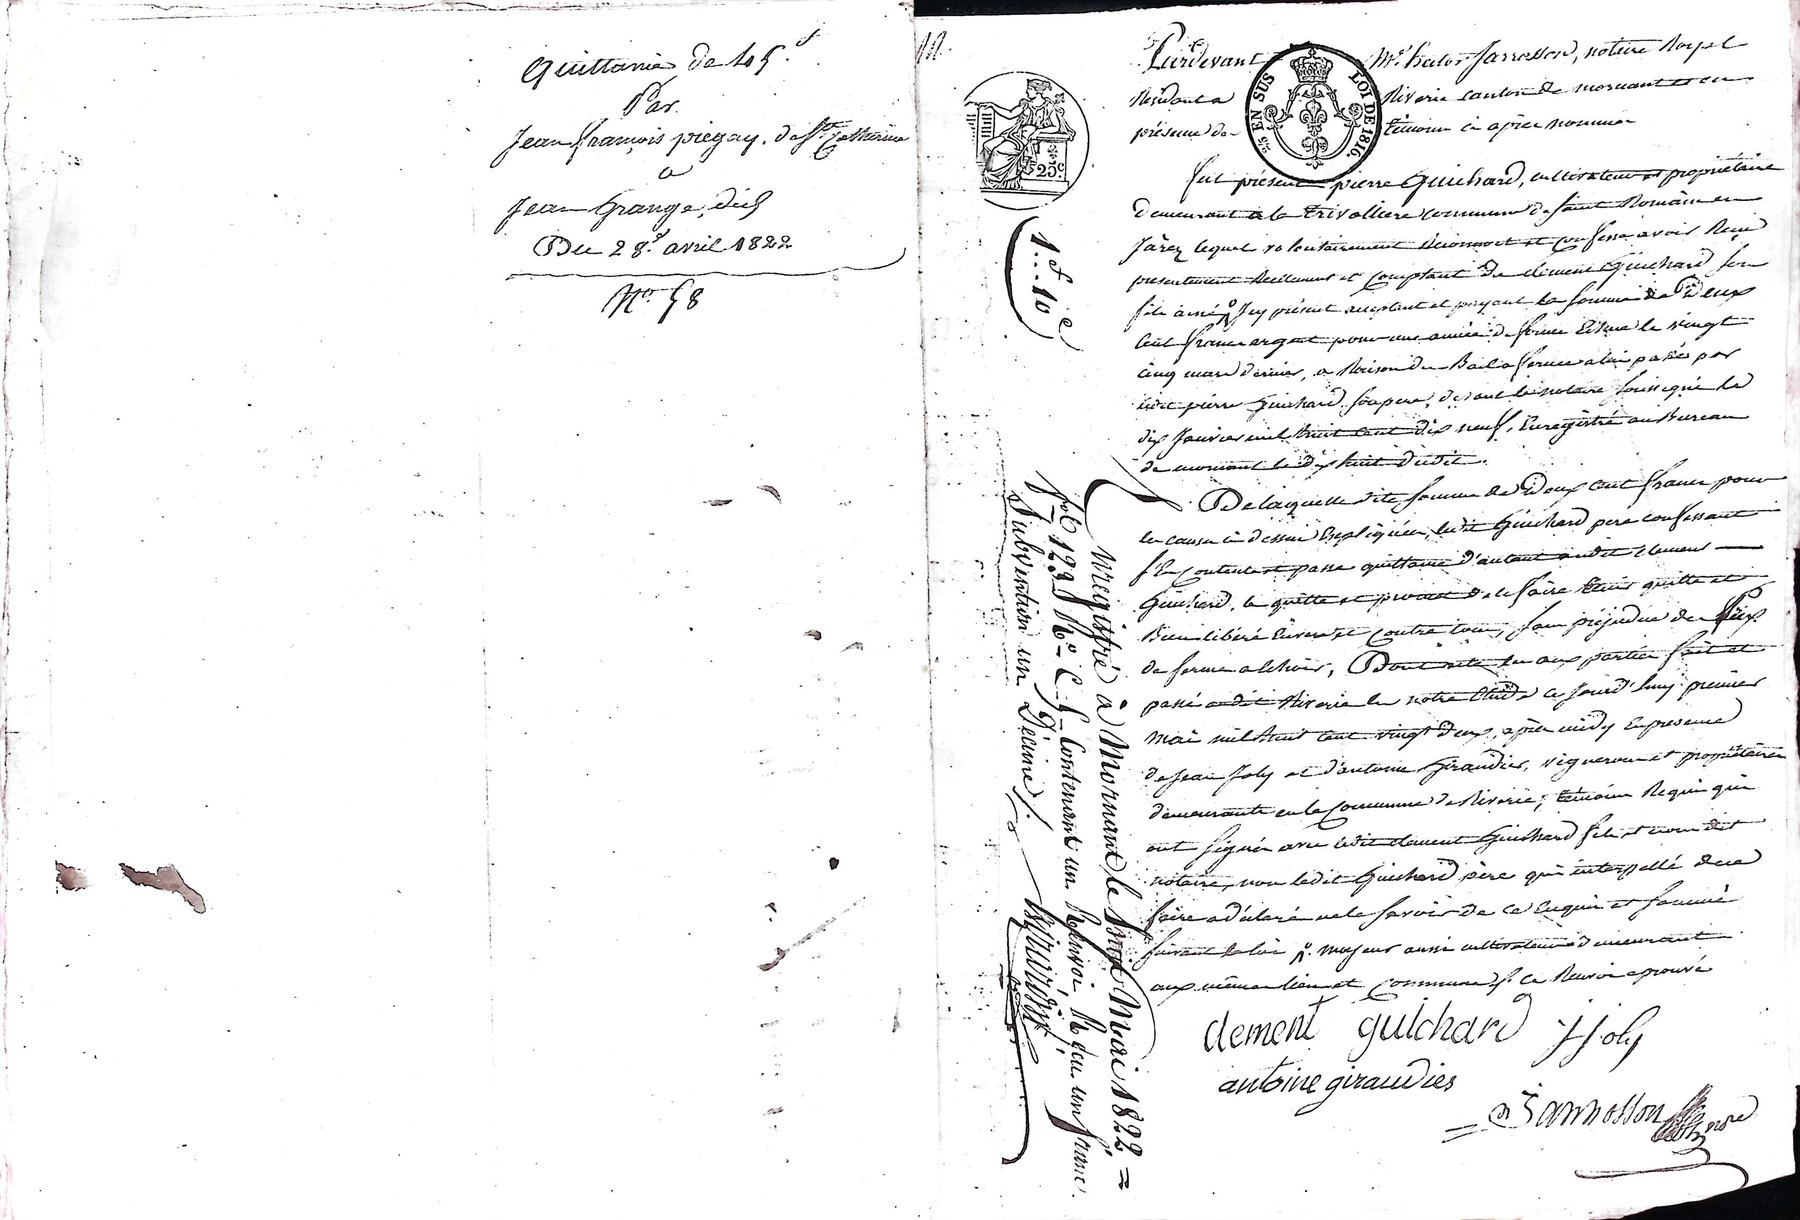 Quittance de 405.f
Par.
Jean françois piégay, de Ste Catherine
a
Jean Grange, dud
Du 28.e avril 1822
No. 58
Pardevant Me. hector Jarrosson, notaire Royal
Résidant a Riverie canton de mornant et en
présence des témoins ci après nommés
EN SUS LOI DE 1816.
25c
1.f..10c
fut présent pierre Guichard, cultivateur et propriétaire
demeurant a la commune de saint Romain en
Jarez lequel volontairement Reconnoit et Confesse avoir Reçu
présentement Réellement et Comptant de clément Guichard son
fils ainé Icy présent acceptant et payant la somme de Deux
Cent francs argent pour une année de ferme Echue le vingt
cinq mars dernier, a Raison du Bail a ferme a lui passé par
ledit pierre Guichard son pere, devant le notaire soussigné le
dix Janvier mil huit cent dix neuf, Enregistré au Bureau
de mornant le dix huit dudit.
De laquelle dite somme de Deux cent francs pour
les causes ci dessus Expliquées, ledit Guichard pere confessant
s'En Contente et passe quittance d'autant audit clément
Guichard, le quitte et promet de le faire tenir quitte et
Bien libéré Envers et Contre tous, sans préjudice de
de ferme a Echoir, Dont acte lu aux parties fait et
passé audit Riverie En notre Etude ce Jourd'huy premier
Mai mil huit cent vingt deux, après midy En présence
de Jean Joly et d'antoine Giraudier, vigneron et propriétaires
demeurants en la Commune de Riverie, témoins Requis qui
ont signés avec ledit clément Guichard fils et nous dit
notaire, non ledit Guichard père qui interpellé de ce
faire a déclaré ne le savoir de ce Enquis et sommé
suivant la loi. majeur aussi cultivateur demeurant
aux mêmes lieu et Commune ce Renvoi aprouvé
clement guichard J Joly
antoine giraudier
Jarrosson nore
Enregistré à Mornant le Mai 1822
fol 123 Ro C Contenant un Renvoi Reçu un franc
Subvention un Décime